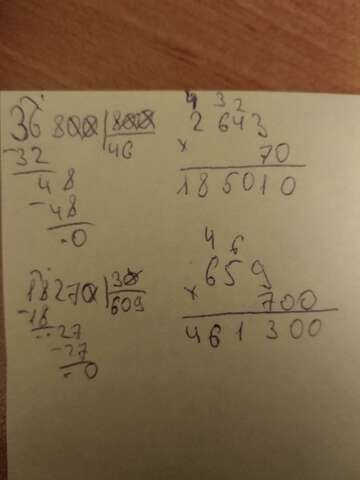 36 800 | 800
-32 46
48
-48
.0
4 3 2
2 643
× 70
185010
18270 | 30
-18 609
..27
-27
.0
4 6
659
× 700
461300